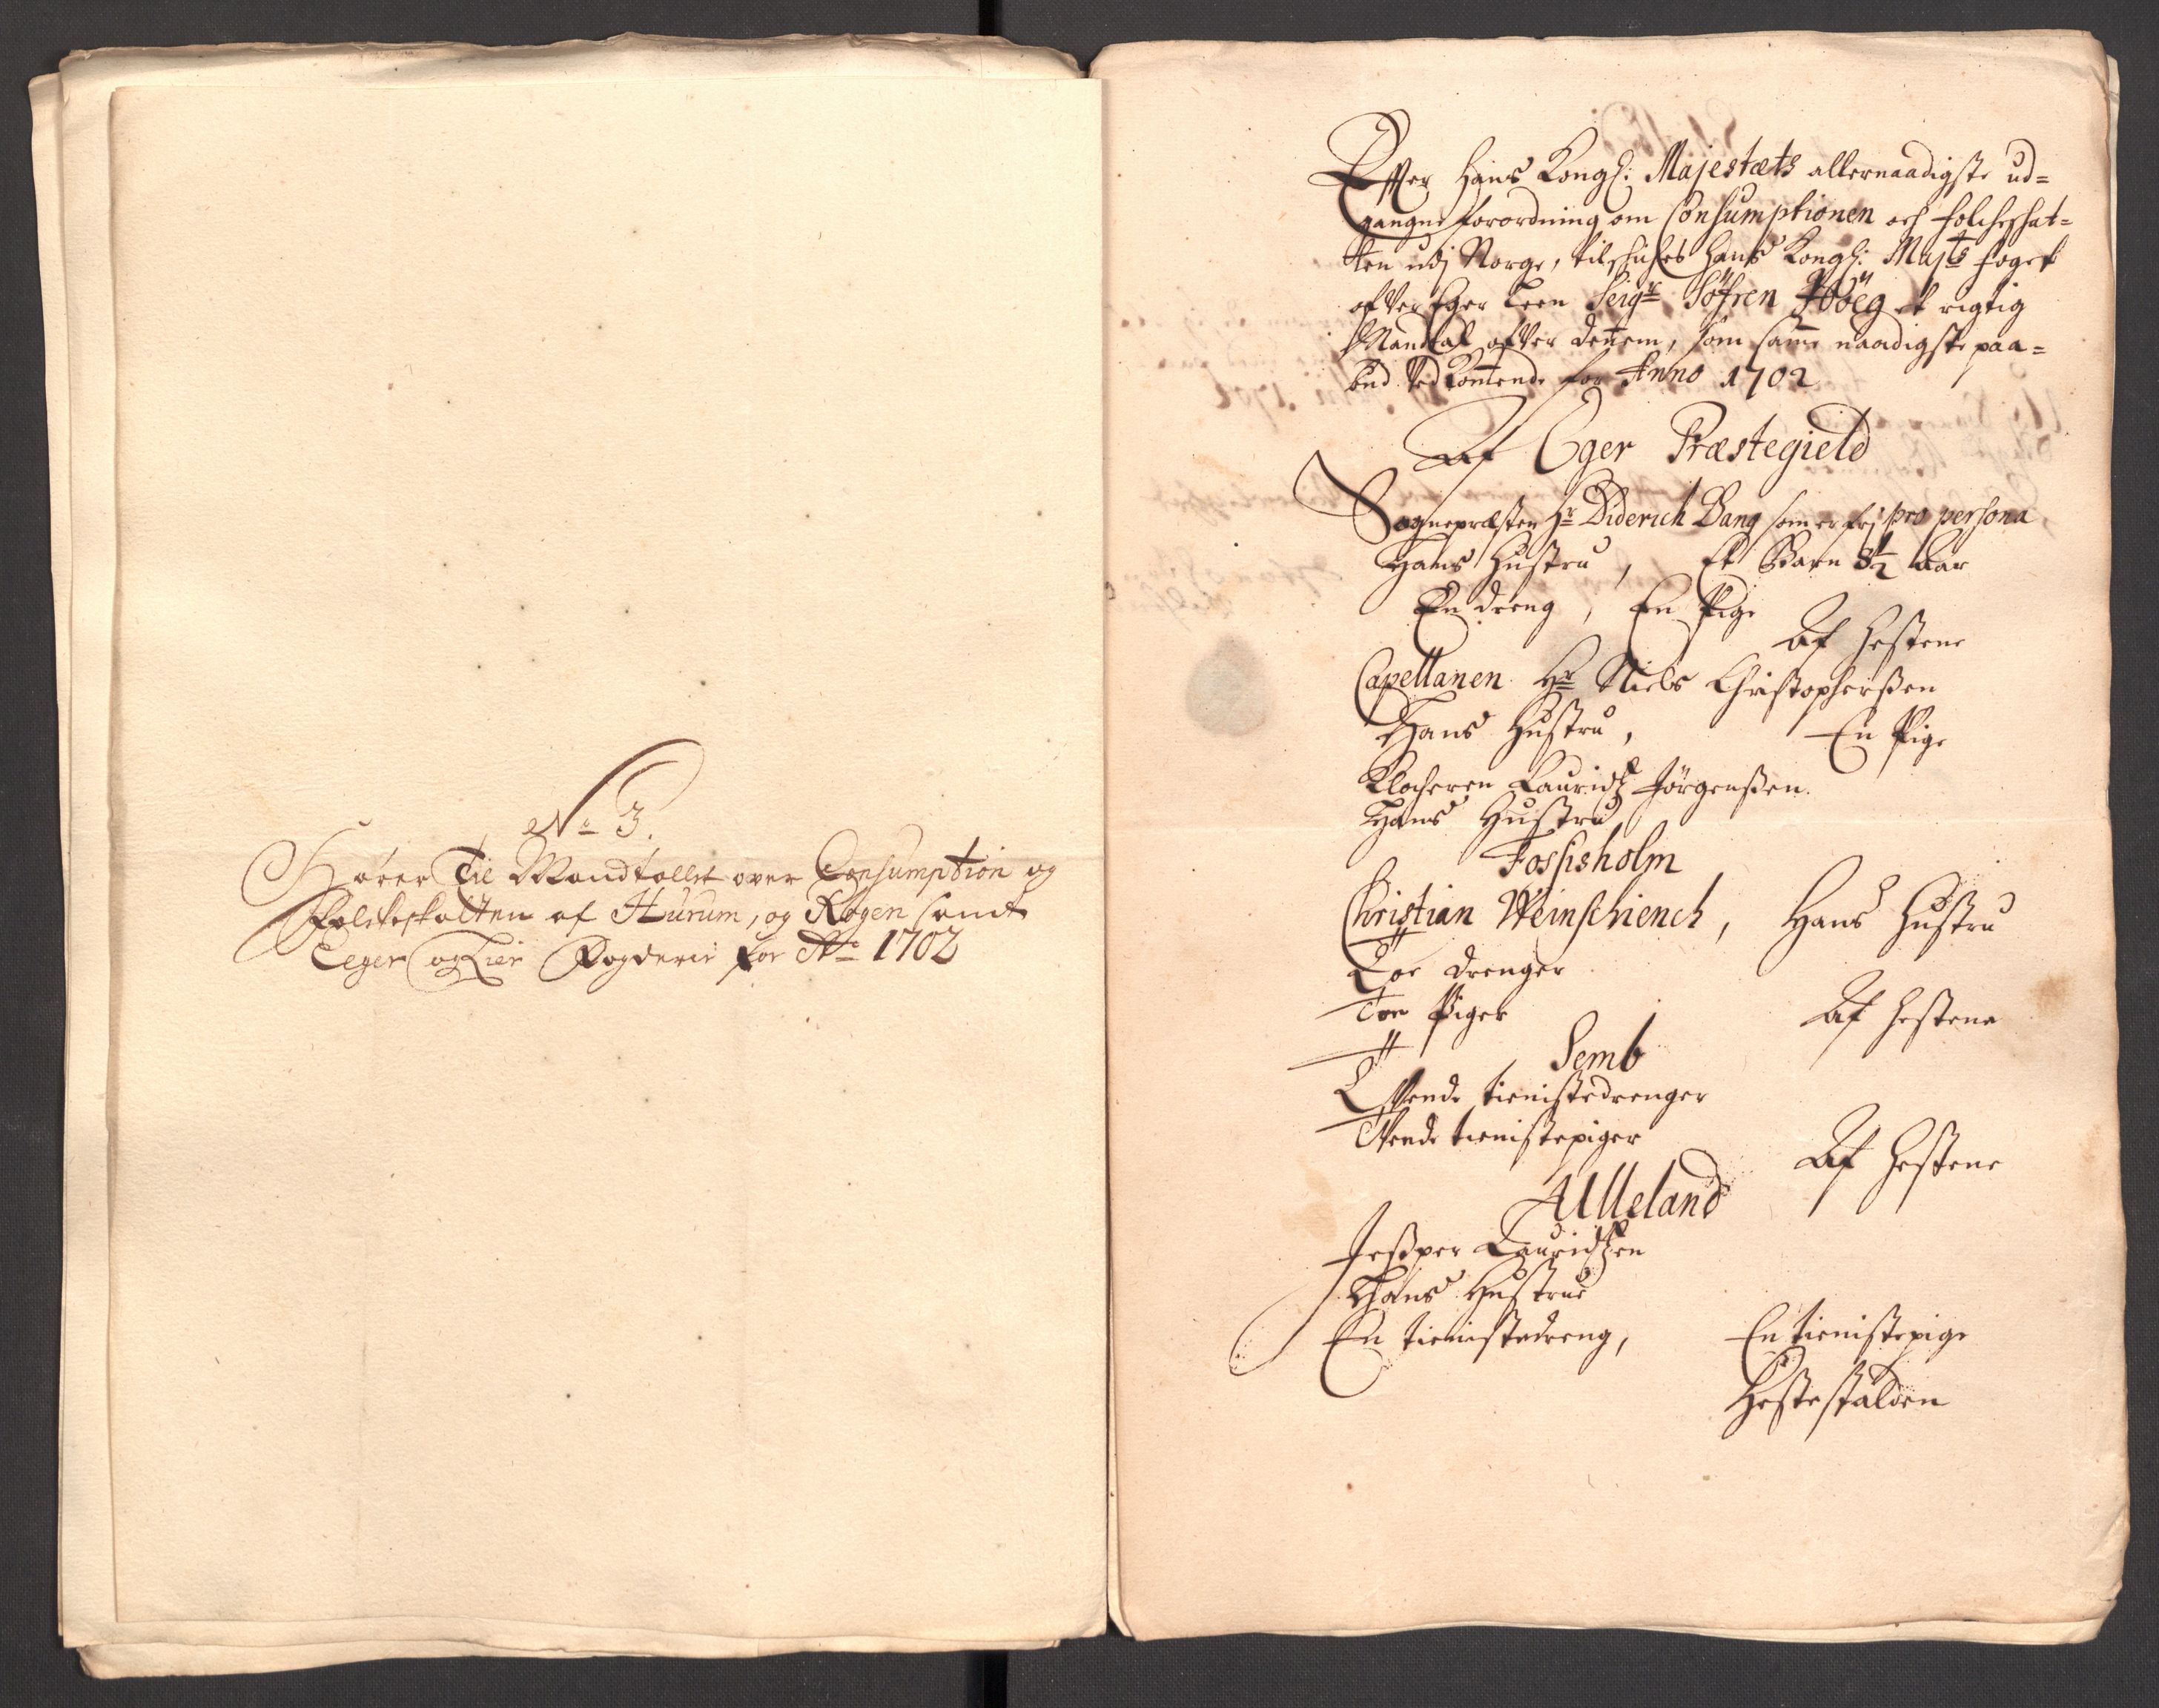 No 3.
Hører Til Mandtallet over Consumption og
Folckeskatten af Hurum, og Røgen samt
Eger og Lier Fogderie for Ao 1702
Effter Hans Kongl: Majestæts allernaadigste ud=
gangne forordning om Consumptionen och folcheschat=
ten udj Norge, tilschiches Hans Kongl: Majts foget
ofver Eger Leen Seigr Söfren Höeg et rigtig
Mandtal ofver dennem, som samme naadigste paa=
bud Vedkommende for Anno 1702
Af Eger Præstegield
Sognepræsten Hr Diderich Bang som er frj pro persona
Hans Hustru, Et Barn 8½ Aar
En dreng, En Pige
Af hestene
Capellanen Hr Niels Christopherßen
Hans Hustru, En Pige
Klocheren Lauridtz Jörgenßen.
Hans Hustru
Fossisholm
Christian Weinschiench, Hans Hustru
Toe drenger
Toe Piger
Af hestene
Semb
Tvende tienistedrenger
Tvende tienistepiger
Af hestene
Ulleland
Jeßper Lauridtzen
Hans Hustrue
En tienistedreng, En tienistepige
Hestestalden